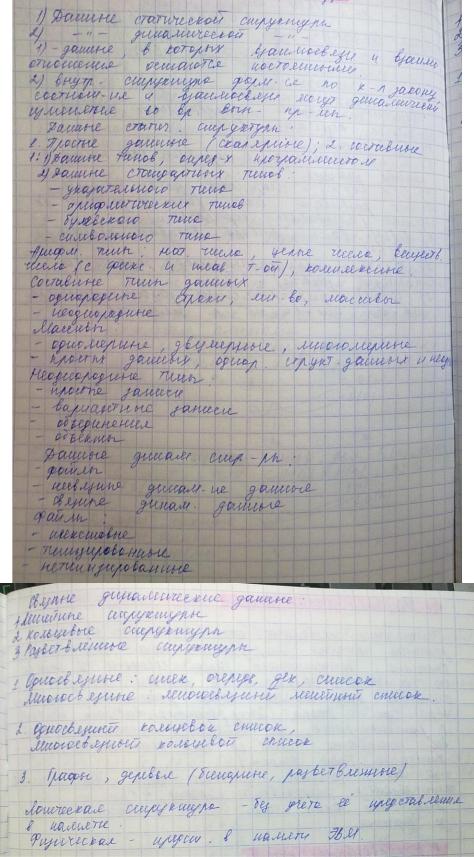 1) Данные статической структуры
2) —"— динамической —"—
1) - данные, в которых взаимосвязи и взаимо
отношения остаются постоянными.
2) внутр. структура форм-ся по к-л закону
состоян-ия и взаимосвязи могут динамически
изменятся во вр. вып. пр-мы.
Данные статич. структуры:
1. Простые данные (скалярные); 2. составные
1: 1) Данные типов, опред-х программистом
2) Данные стандартных типов
- указательного типа
- арифметических типов
- булевского типа
- символьного типа
Арифм. типы: нат. числа, целые числа, веществ.
числа (с фикс и плав т-ой), комплексные.
Составные типы данных
- однородные: строки, мн-во, массивы
- неоднородные
Массивы
- одномерные, двумерные, многомерные
- простых данных, однор. структ. данных и неод
Неоднородные типы:
- простые записи
- вариантные записи
- объединения
- объекты
Данные динам стр-ры:
- файлы
- несвязные динам-ие данные
- связные динам. данные
Файлы:
- текстовые
- типизированные
- нетипизированные
Связные динамические данные:
1 Линейные структуры
2 Кольцевые структуры
3 Разветвленные структуры
1. Односвязные: стек, очередь, дек, список
Многосвязные: многосвязный линейный список.
2. Односвязный кольцевой список,
многосвязный кольцевой список
3. Графы, деревья (бинарные, разветвленные)
Логическая структура - без учёта её представления
в памяти.
Физическая - предст. в памяти ЭВМ.